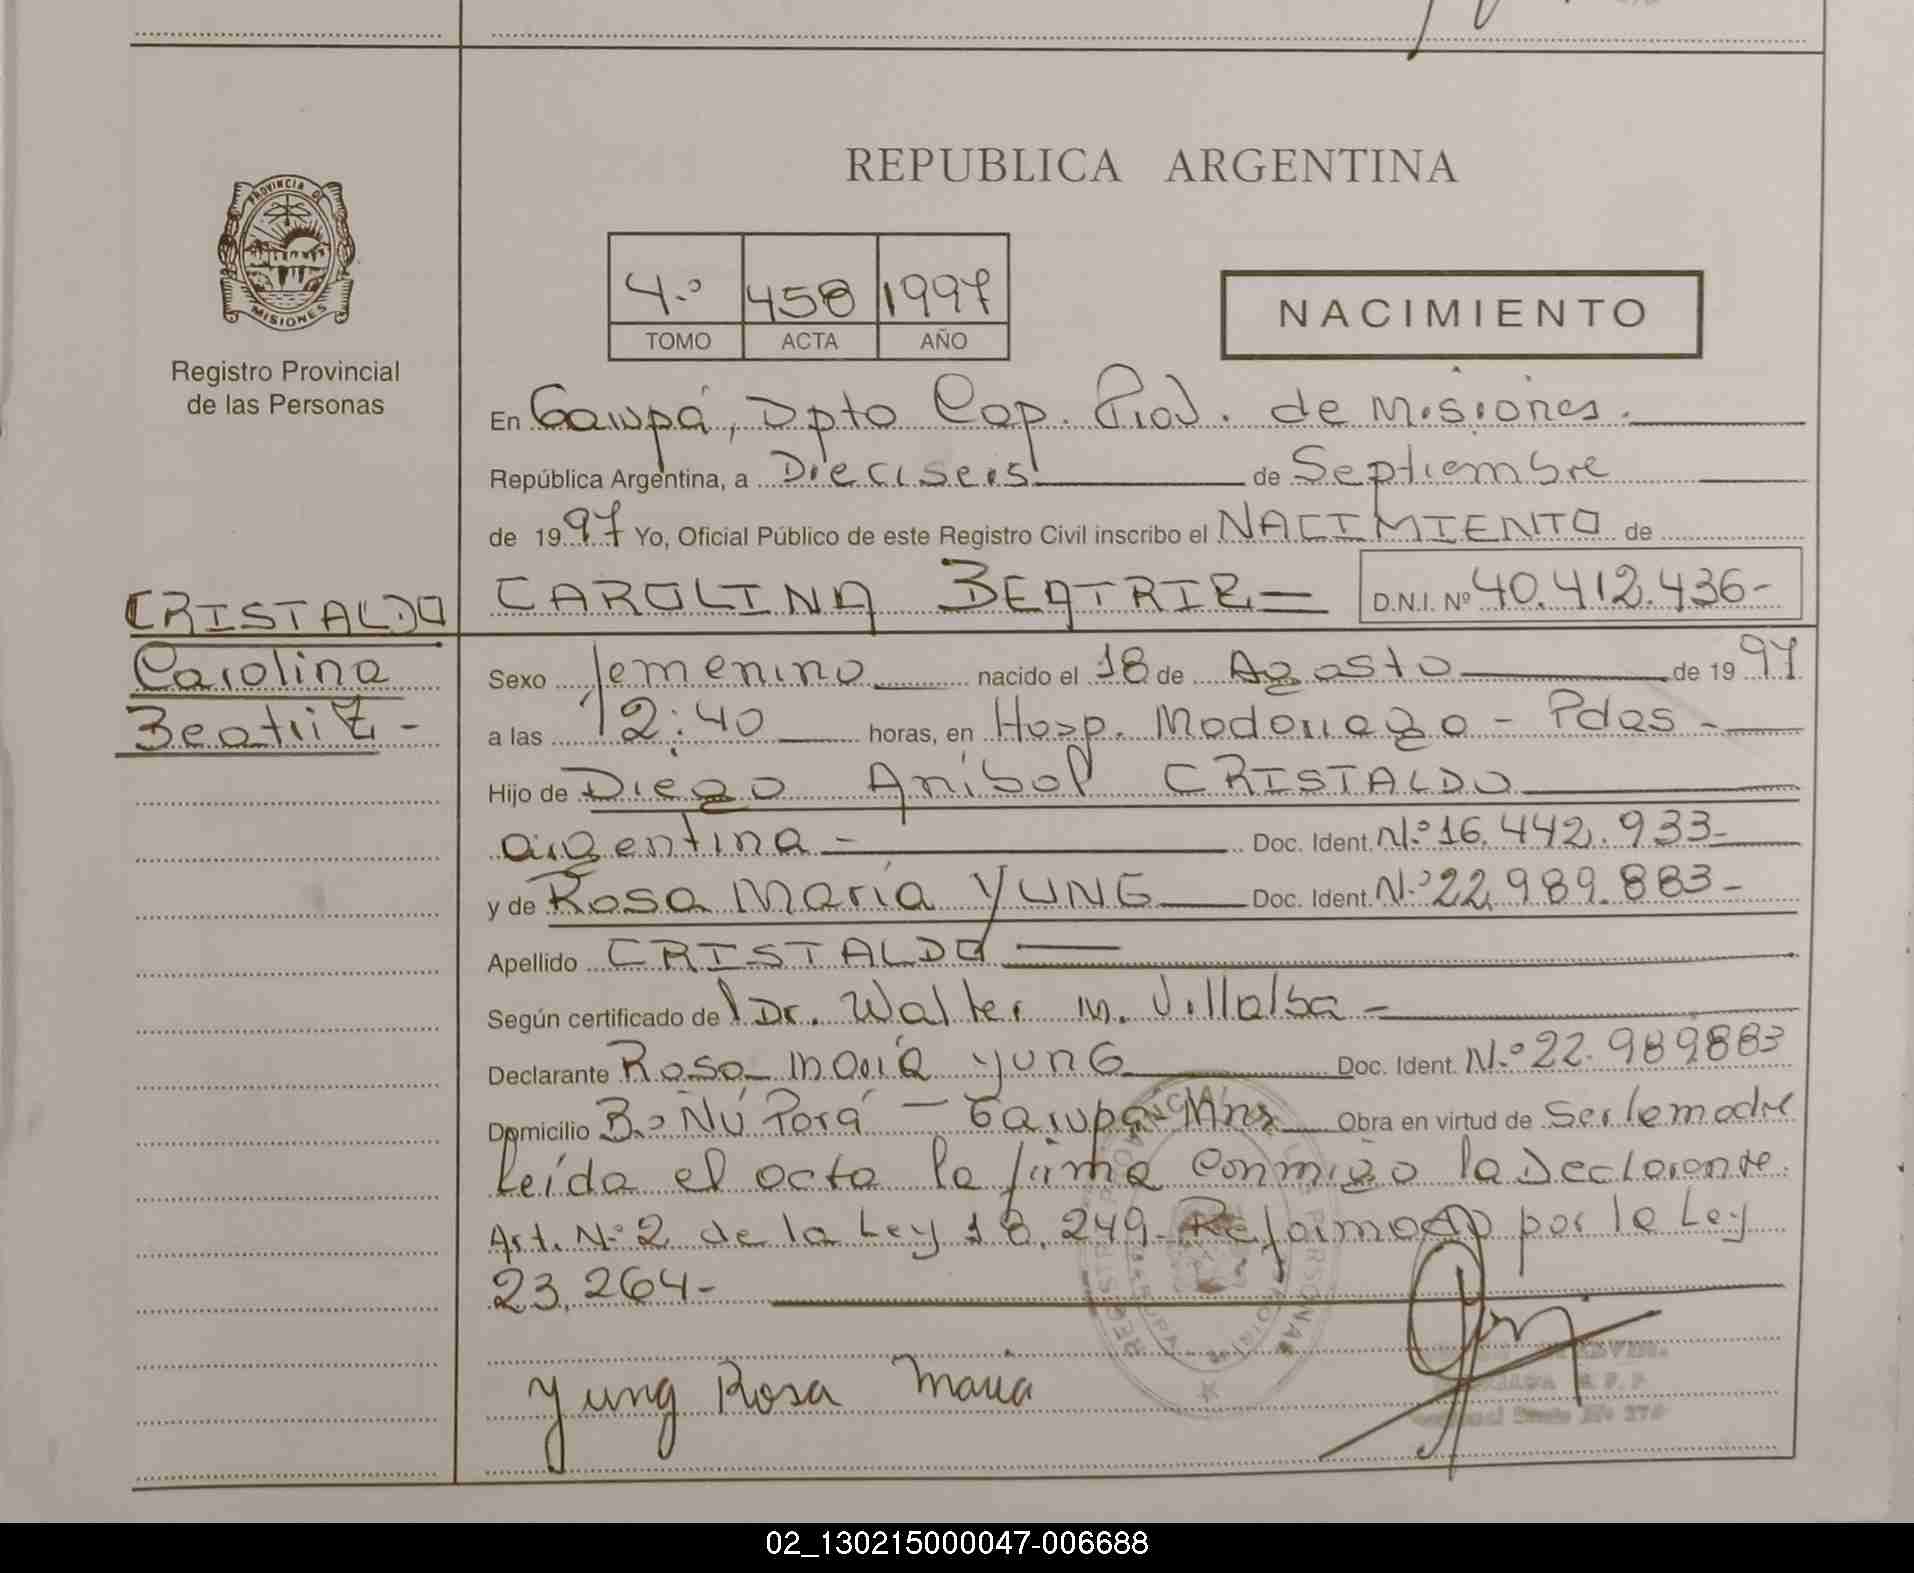 REPUBLICA ARGENTINA
PROVINCIA DE
MISIONES
Registro Provincial
de las Personas
4.º 458 1997
TOMO ACTA AÑO
NACIMIENTO
En Garupá, Dpto Cap. Prov. de Misiones.
República Argentina, a Dieciseis de Septiembre
de 1997 Yo, Oficial Público de este Registro Civil inscribo el NACIMIENTO de
CAROLINA BEATRIZ D.N.I. Nº 40.412.436-
CRISTALDO
Carolina
Beatriz -
Sexo femenino nacido el 18 de Agosto de 1997
a las 12:40 horas, en Hosp. Madariaga - Pdas -
Hijo de Diego Aníbal CRISTALDO
argentina - Doc. Ident. N.º 16.442.933-
y de Rosa María YUNG Doc. Ident. N.º 22.989.883-
Apellido CRISTALDO
Según certificado del Dr. Walter M. Villalba -
Declarante Rosa María Yung Doc. Ident. N.º 22.989883
Domicilio B.º Ñú Porá - Garupá Mnes Obra en virtud de Ser la madre
Leída el acta la firma conmigo la Declarante
Art. Nº 2 de la Ley 18.249. Reformado por la Ley
23.264-
Yung Rosa Maria
02_130215000047-006688